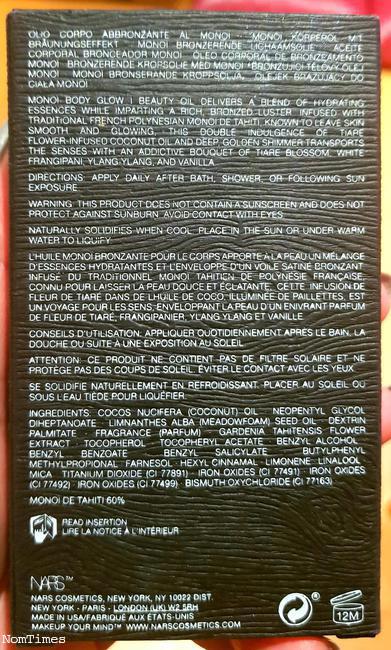 OLIO CORPO ABBRONZANTE AL MONOÏ · MONOÏ KÖRPERÖL MIT
BRÄUNUNGSEFFEKT · MONOÏ BRONZERENDE LICHAAMSOLIE · ACEITE
CORPORAL BRONCEADOR MONOÏ · ÓLEO CORPORAL DE BRONZEAMENTO
MONOÏ · BRONZERENDE KROPSOLIE MED MONOÏ · BRONZUJÍCÍ TĚLOVÝ OLEJ
MONOÏ · MONOÏ BRONSERANDE KROPPSOLJA · OLEJEK BRĄZUJĄCY DO
CIAŁA MONOÏ
MONOÏ BODY GLOW I BEAUTY OIL DELIVERS A BLEND OF HYDRATING
ESSENCES WHILE IMPARTING A RICH, BRONZED LUSTER. INFUSED WITH
TRADITIONAL FRENCH POLYNESIAN MONOÏ DE TAHITI, KNOWN TO LEAVE SKIN
SMOOTH AND GLOWING, THIS DOUBLE INDULGENCE OF TIARE
FLOWER-INFUSED COCONUT OIL AND DEEP, GOLDEN SHIMMER TRANSPORTS
THE SENSES WITH AN ADDICTIVE BOUQUET OF TIARE BLOSSOM, WHITE
FRANGIPANI, YLANG YLANG, AND VANILLA.
DIRECTIONS: APPLY DAILY AFTER BATH, SHOWER, OR FOLLOWING SUN
EXPOSURE.
WARNING: THIS PRODUCT DOES NOT CONTAIN A SUNSCREEN AND DOES NOT
PROTECT AGAINST SUNBURN. AVOID CONTACT WITH EYES.
NATURALLY SOLIDIFIES WHEN COOL. PLACE IN THE SUN OR UNDER WARM
WATER TO LIQUEFY.
L'HUILE MONOÏ BRONZANTE POUR LE CORPS APPORTE À LA PEAU UN MÉLANGE
D'ESSENCES HYDRATANTES ET L'ENVELOPPE D'UN VOILE SATINÉ BRONZANT.
INFUSÉ DU TRADITIONNEL MONOÏ TAHITIEN DE POLYNÉSIE FRANÇAISE,
CONNU POUR LAISSER LA PEAU DOUCE ET ÉCLATANTE, CETTE INFUSION DE
FLEUR DE TIARÉ DANS DE L'HUILE DE COCO, ILLUMINÉE DE PAILLETTES, EST
UN VOYAGE POUR LES SENS; ENVELOPPANT LA PEAU D'UN ENIVRANT PARFUM
DE FLEUR DE TIARÉ, FRANGIPANIER, YLANG YLANG ET VANILLE.
CONSEILS D'UTILISATION: APPLIQUER QUOTIDIENNEMENT APRÈS LE BAIN, LA
DOUCHE OU SUITE À UNE EXPOSITION AU SOLEIL.
ATTENTION: CE PRODUIT NE CONTIENT PAS DE FILTRE SOLAIRE ET NE
PROTÈGE PAS DES COUPS DE SOLEIL. ÉVITER LE CONTACT AVEC LES YEUX.
SE SOLIDIFIE NATURELLEMENT EN REFROIDISSANT. PLACER AU SOLEIL OU
SOUS L'EAU TIÈDE POUR LIQUÉFIER.
INGREDIENTS: COCOS NUCIFERA (COCONUT) OIL · NEOPENTYL GLYCOL
DIHEPTANOATE · LIMNANTHES ALBA (MEADOWFOAM) SEED OIL · DEXTRIN
PALMITATE · FRAGRANCE (PARFUM) · GARDENIA TAHITENSIS FLOWER
EXTRACT · TOCOPHEROL · TOCOPHERYL ACETATE · BENZYL ALCOHOL ·
BENZYL BENZOATE · BENZYL SALICYLATE · BUTYLPHENYL
METHYLPROPIONAL · FARNESOL · HEXYL CINNAMAL · LIMONENE · LINALOOL ·
MICA · TITANIUM DIOXIDE (CI 77891) · IRON OXIDES (CI 77491) · IRON OXIDES
(CI 77492) · IRON OXIDES (CI 77499) · BISMUTH OXYCHLORIDE (CI 77163)
MONOÏ DE TAHITI 60%
READ INSERTION
LIRE LA NOTICE À L'INTÉRIEUR
NARS™
NARS COSMETICS, NEW YORK, NY 10022 DIST.
NEW YORK - PARIS - LONDON (UK) W2 5RH
MADE IN USA/FABRIQUÉ AUX ÉTATS-UNIS
MAKEUP YOUR MIND™ WWW.NARSCOSMETICS.COM
12M
NomTimes